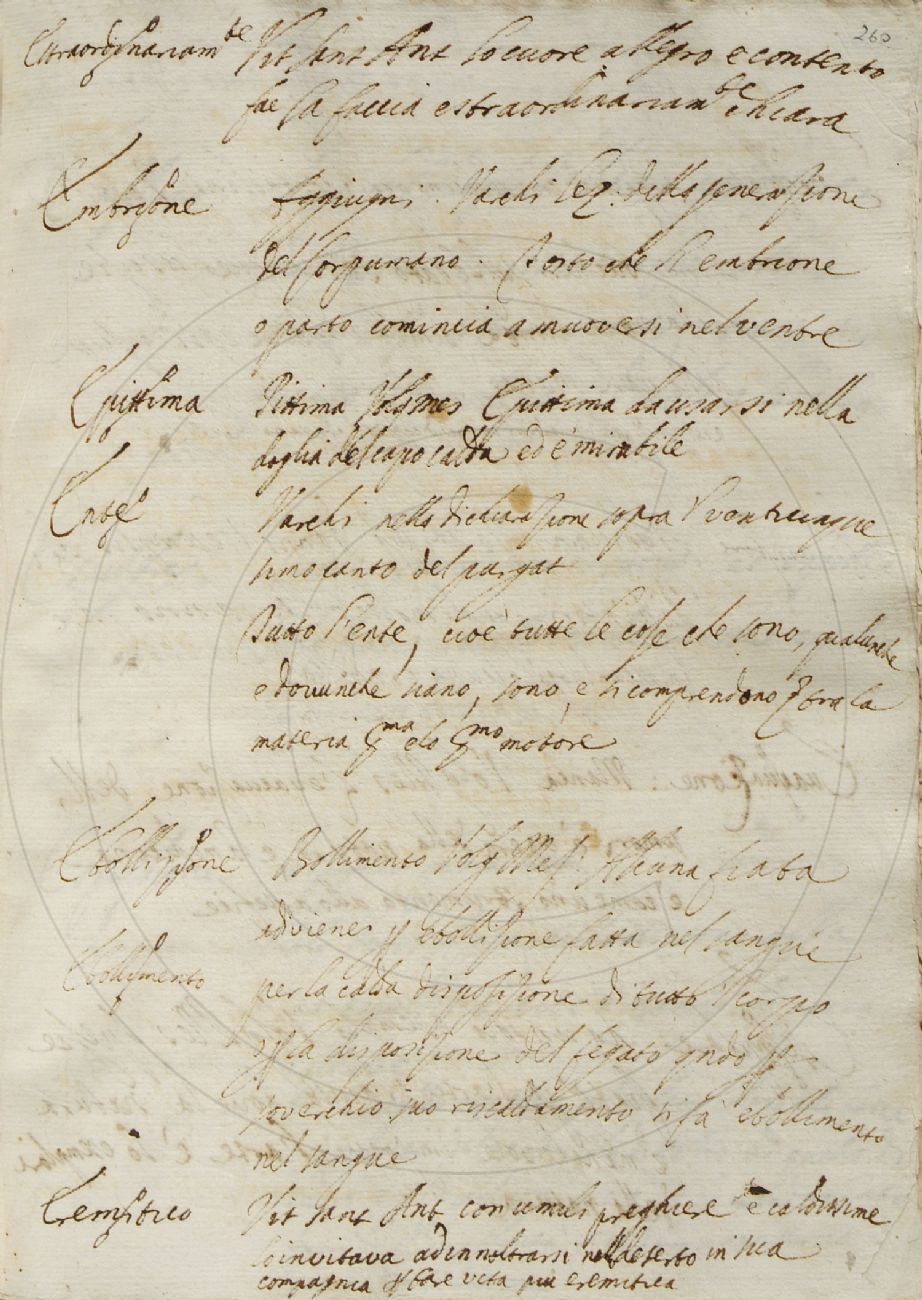 260
Estraordinariam.te Vit. Sant. Ant. Lo cuore allegro e contento
fae la faccia estraordinariam.te chiara
Embrione Aggiugni. Varchi Lez. della generazione
del Corpumano. Tosto che l'embrione
o parto comincia a muoversi nel ventre
Epittima Pittima Volg. mes. Epittima da usarsi nella
doglia del capo calda ed è mirabile
Ente Varchi nella dichiarazione sopra l venticinque
simo canto del purgat
Tutto l'ente, cioè tutte le cose che sono, qualunche
e dovunche siano, sono, e si comprendono tra la
materia p.ma e lo p.mo motore
Ebollizione Bollimento Volg. Mes. Alcuna fiata
adviene p ebollizione fatta nel sangue
Ebollimento per la calda disposizione di tutto l corpo
p la disposizione del fegato qndo p
soverchio suo riscaldamento si fa ebollimento
nel sangue
Eremitico Vit. Sant. Ant. con umili preghiere e caldissime
lo invitava ad innoltrarsi nel deserto in sua
compagnia p fare vita piu eremitica